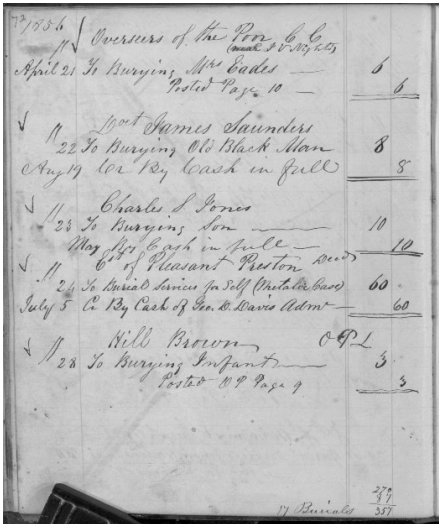 1856
" Overseers of the Poor C C
April 21 To Burying Mrs Eades — 6
Posted Page 10 — 6
" Doct James Saunders
22 To Burying Old Black Man 8
Aug 19 Cr By Cash in full 8
" Charles S Jones
23 To Burying Son — 10
May By Cash in full — 10
" Est of Pleasant Preston Decd
24 To Burial Services for Self (Metalic Case) 60
July 5 Cr By Cash of Geo. D. Davis Admr — 60
" Hill Brown O P L
28 To Burying Infant — 3
Posted O P Page 9 3
270
87
17 Burials 357